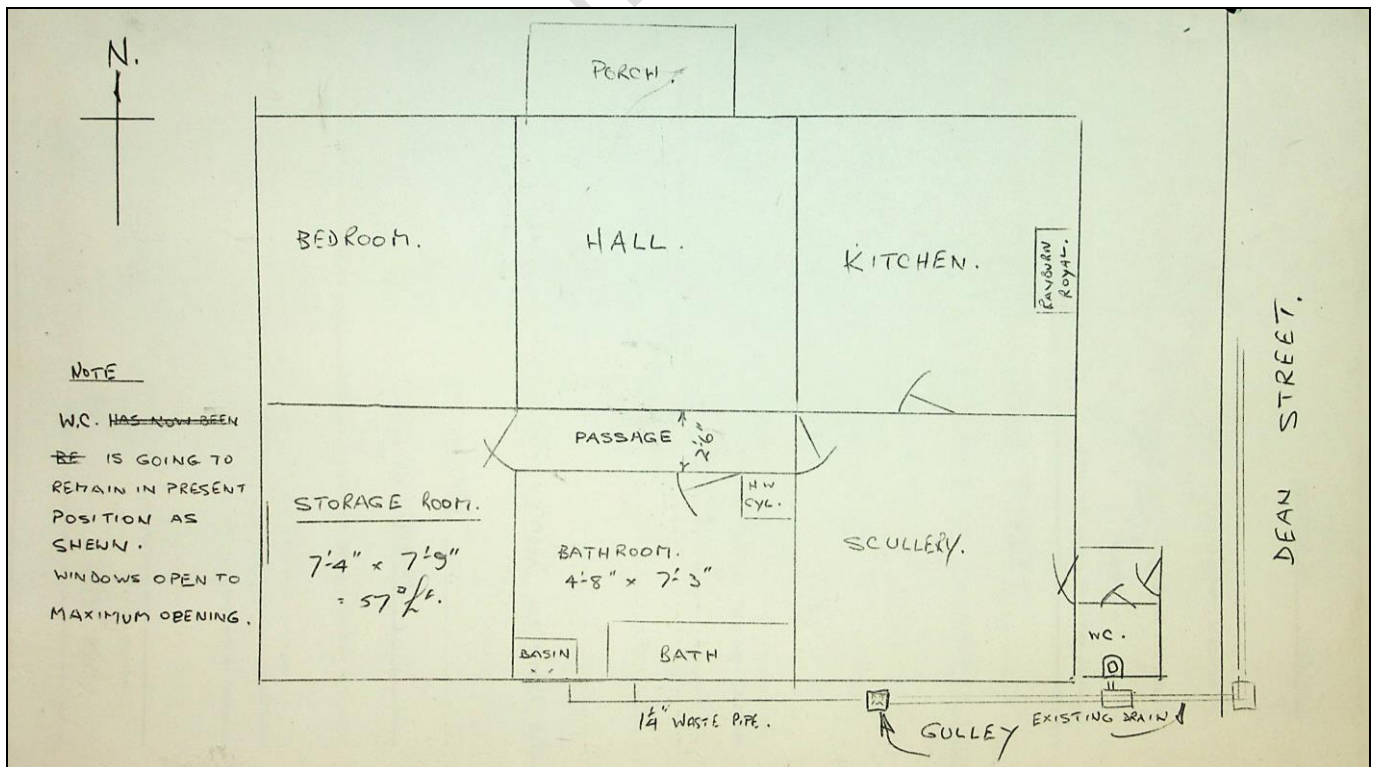 N.
PORCH.
BEDROOM.
HALL.
KITCHEN.
RAYBURN
ROYAL.
DEAN STREET.
NOTE
W.C. HAS NOW BEEN
BE IS GOING TO
REMAIN IN PRESENT
POSITION AS
SHEWN.
WINDOWS OPEN TO
MAXIMUM OPENING.
PASSAGE
2'-6"
STORAGE ROOM.
7'-4" x 7'-9"
= 57 □ft.
H W
CYL.
BATHROOM.
4'-8" x 7'-3"
SCULLERY.
BASIN
BATH
WC.
1¼" WASTE PIPE.
GULLEY
EXISTING DRAIN